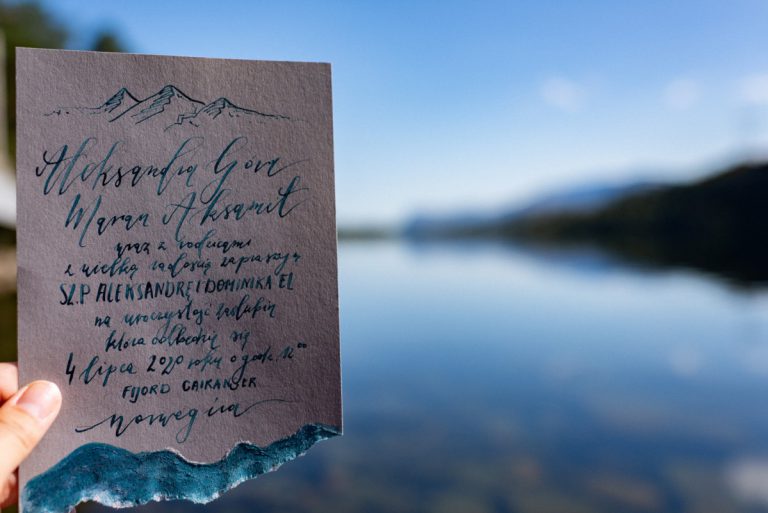 Aleksandrą Góra
Maran Aksamit
wraz z rodzicami
z wielką radością zapraszają
SZ.P ALEKSANDRĘ I DOMINIKA EL
na uroczystość zaślubin
która odbędzie się
4 lipca 2020 roku o godz. 12⁰⁰
FIJORD GAIRANGER
Norwegia